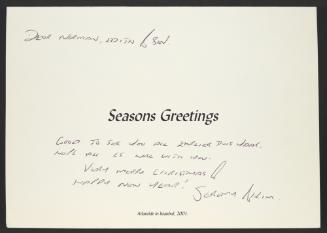 Dear Norman, Edith & Ben.
Seasons Greetings
Good to see you all earlier this year.
Hope all is well with you.
Very Merry Christmas &
Happy New Year!
Istanbul, 2001